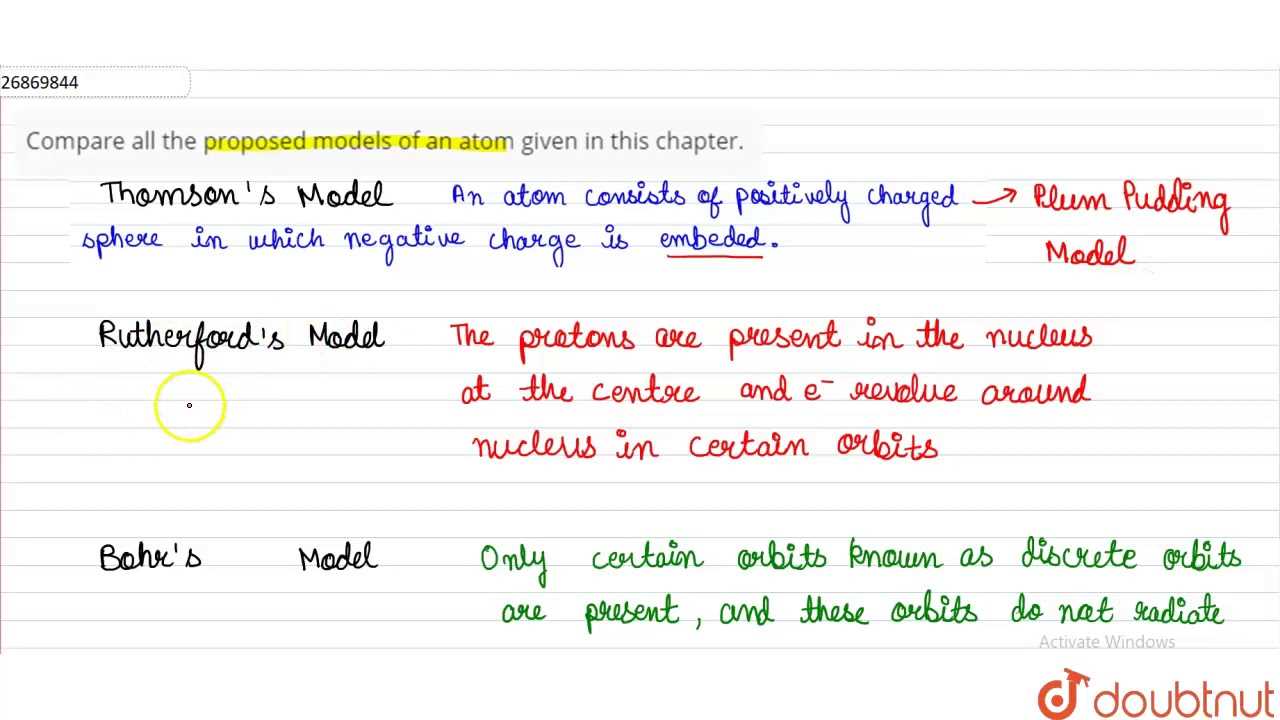 26869844
Compare all the proposed models of an atom given in this chapter.
Thomson's Model An atom consists of positively charged → Plum Pudding
sphere in which negative charge is embeded. Model
Rutherford's Model The protons are present in the nucleus
at the centre and e⁻ revolve around
nucleus in certain orbits
Bohr's Model Only certain orbits known as discrete orbits
are present, and these orbits do not radiate
Activate Windows
doubtnut